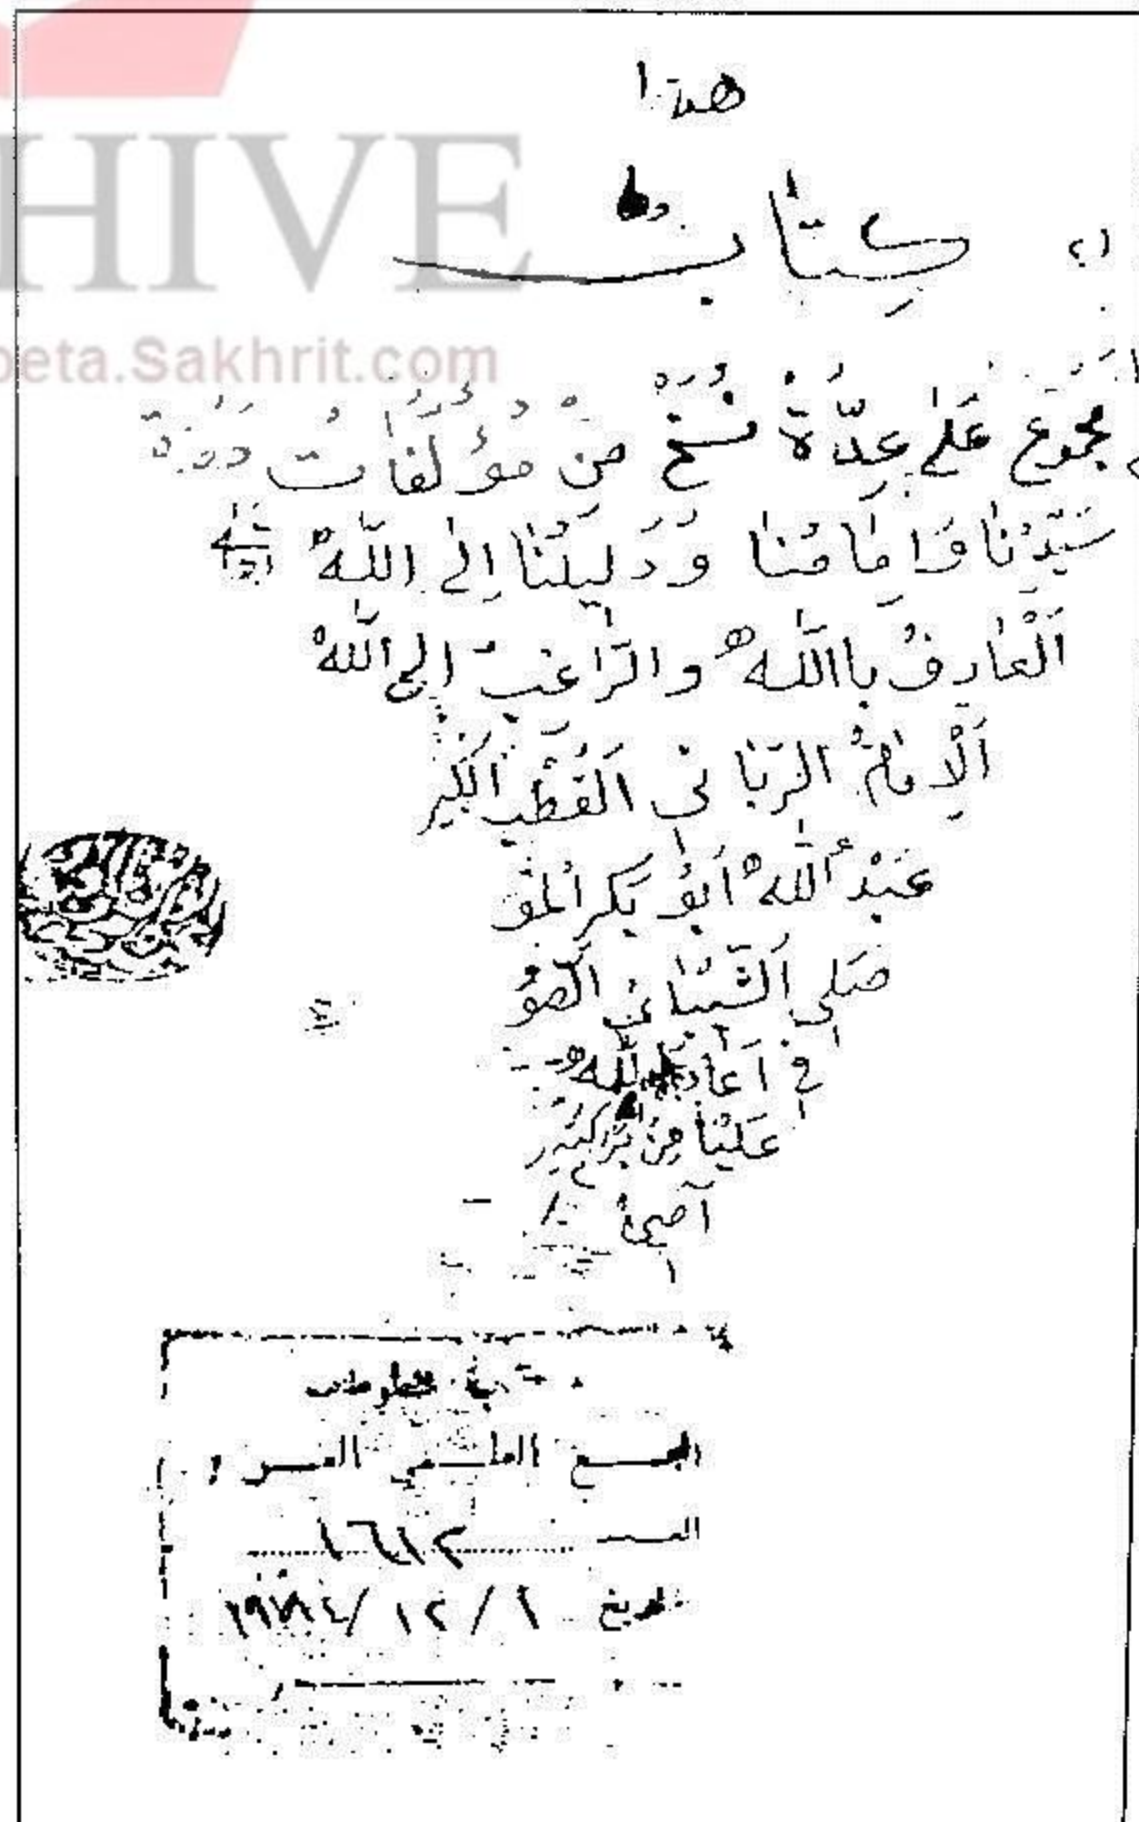 HIVE
beta.Sakhrit.com
هذا
كتاب
مجموع على عدّة نسخ من مؤلفات
سيّدنا وامامنا ودليلنا إلى الله
العارف باالله والرّاغب إلى الله
الإمام الربّاني القطب الكبير
عبد الله أبو بكر المو
صلي الشيباني الصو
في أعاد الله
علينا من بركته
آمين
مخطوطات
المجمع العلمي
العدد ١٦١٢
التاريخ ١ / ١٢ / ١٩٨٤